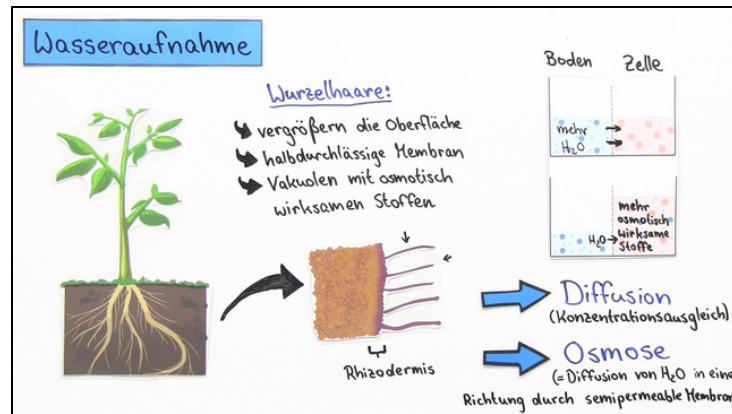 Wasseraufnahme
Wurzelhaare:
vergrößern die Oberfläche
halbdurchlässige Membran
Vakuolen mit osmotisch
wirksamen Stoffen
Boden Zelle
mehr
H₂O
mehr
osmotisch
wirksame
Stoffe
H₂O
Rhizodermis
Diffusion
(Konzentrationsausgleich)
Osmose
(=Diffusion von H₂O in eine
Richtung durch semipermeable Membran